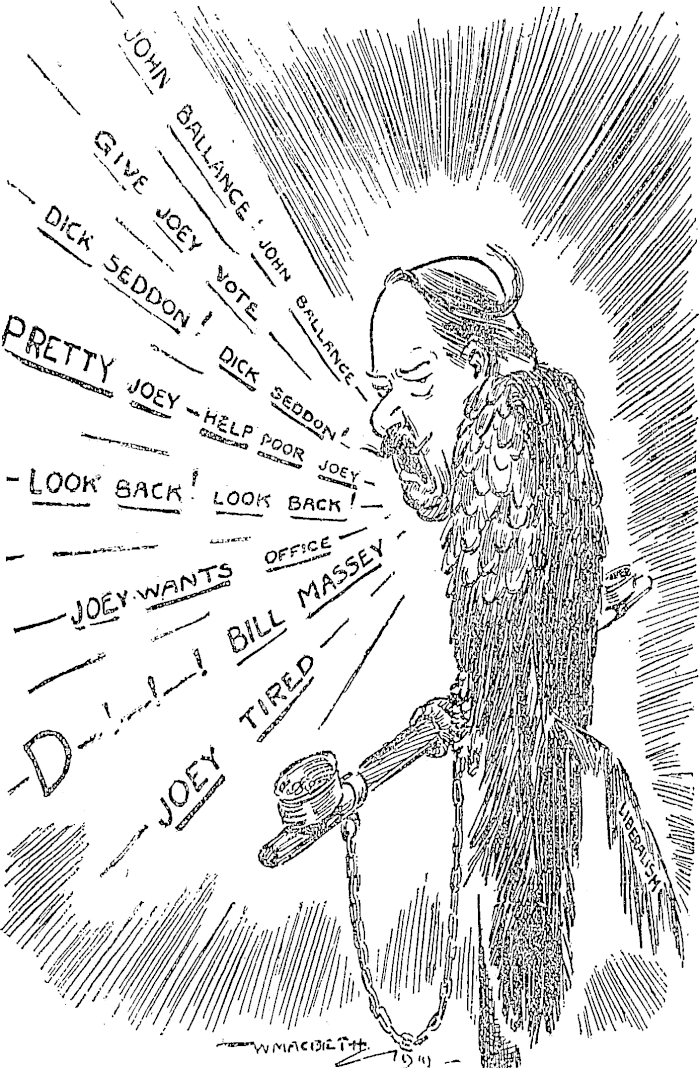 JOHN BALLANCE! JOHN BALLANCE
GIVE JOEY VOTE
DICK SEDDON! DICK SEDDON!
PRETTY JOEY - HELP POOR JOEY -
- LOOK BACK! LOOK BACK! -
- JOEY WANTS OFFICE -
- D-!-!-! BILL MASSEY
- JOEY TIRED
LIBERALISM